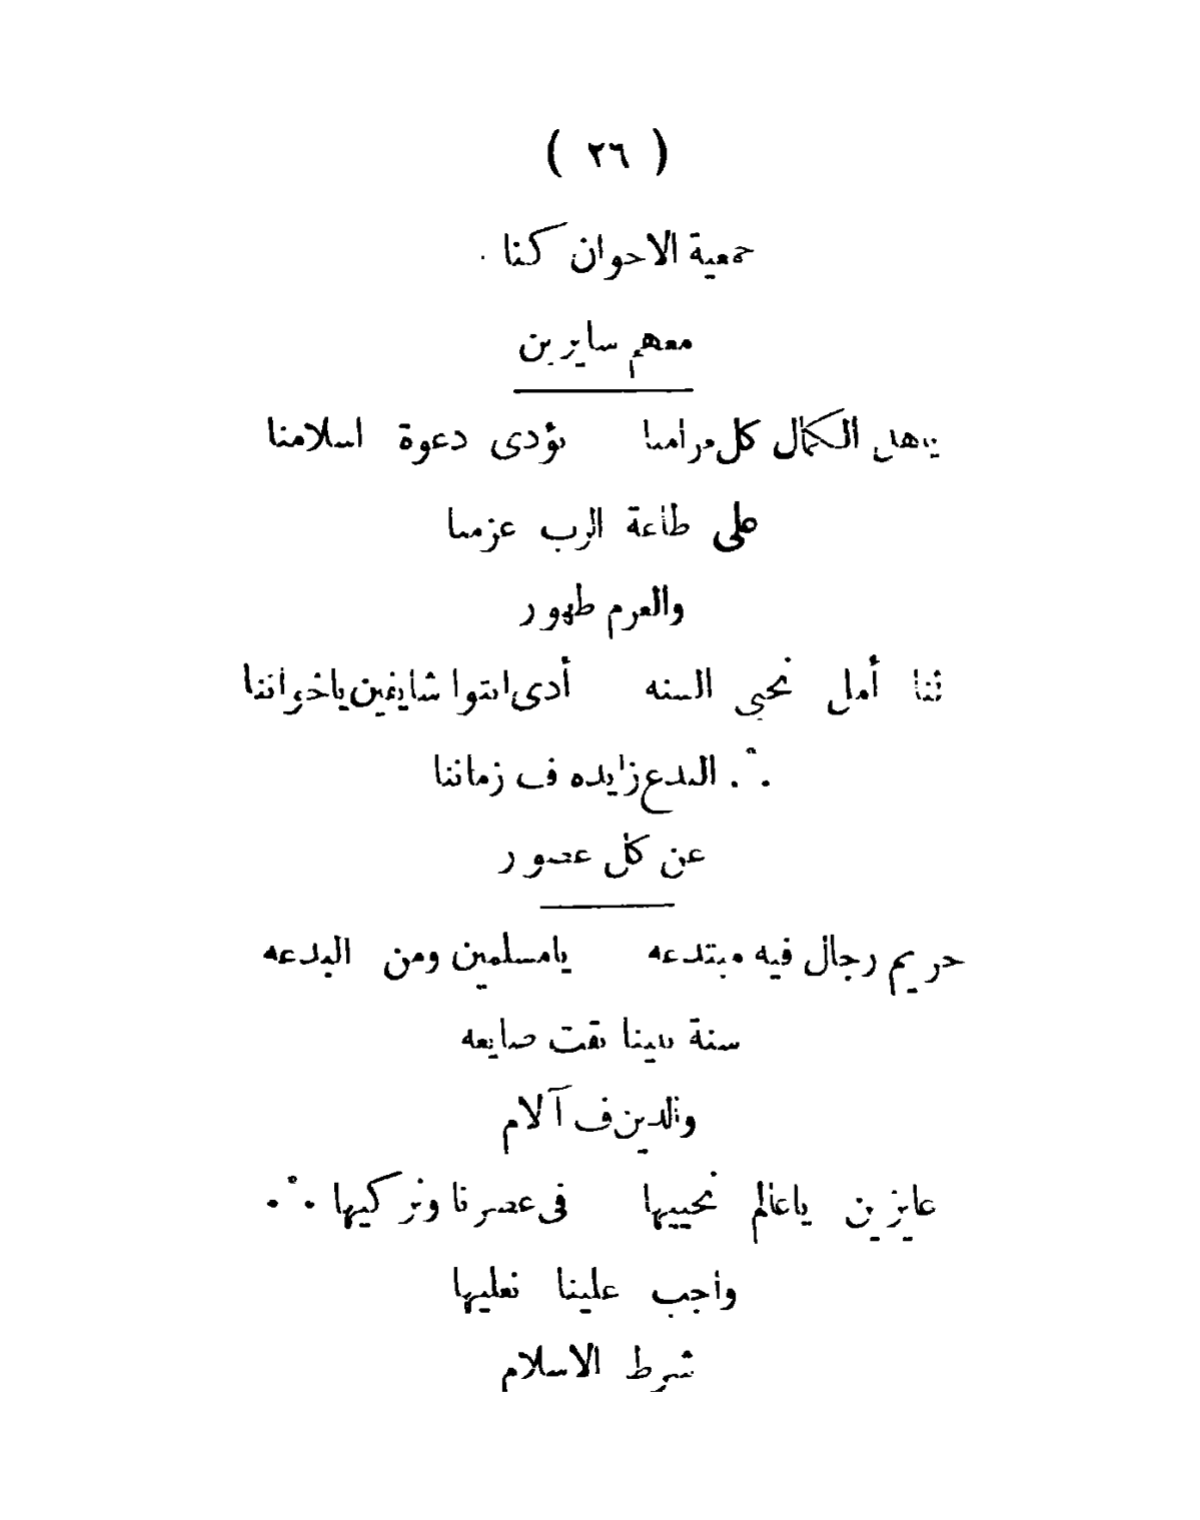 ( ٢٦ )
جمعية الاخوان كنا .
معهم سايرين
الكمال كل مرامنا نؤدى دعوة اسلامنا
على طاعة الرب عزمنا
والعزم طهور
لنا أمل نحيى السنه أدى انتوا شايفين ياخواننا
∴ البدع زايده ف زماننا
عن كل عصور
حريم رجال فيه مبتدعه يامسلمين ومن البدعه
سنة نبينا بقت ضايعه
والدين ف آلام
عايزين ياعالم نحييها فى عصرنا ونزكيها ∴
واجب علينا نعليها
شرط الاسلام